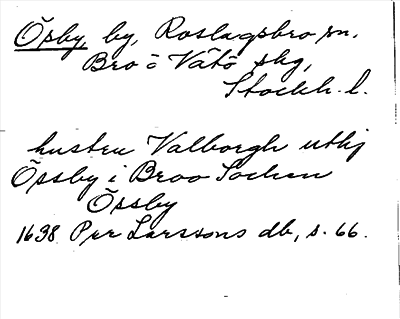 Ösby, by, Roslagsbro sn,
Bro o Vätö skg,
Stockh. l.
hustru Valborgh uthj
Össby i Broo Sochen
Össby
1638 Per Larssons db, s. 66.